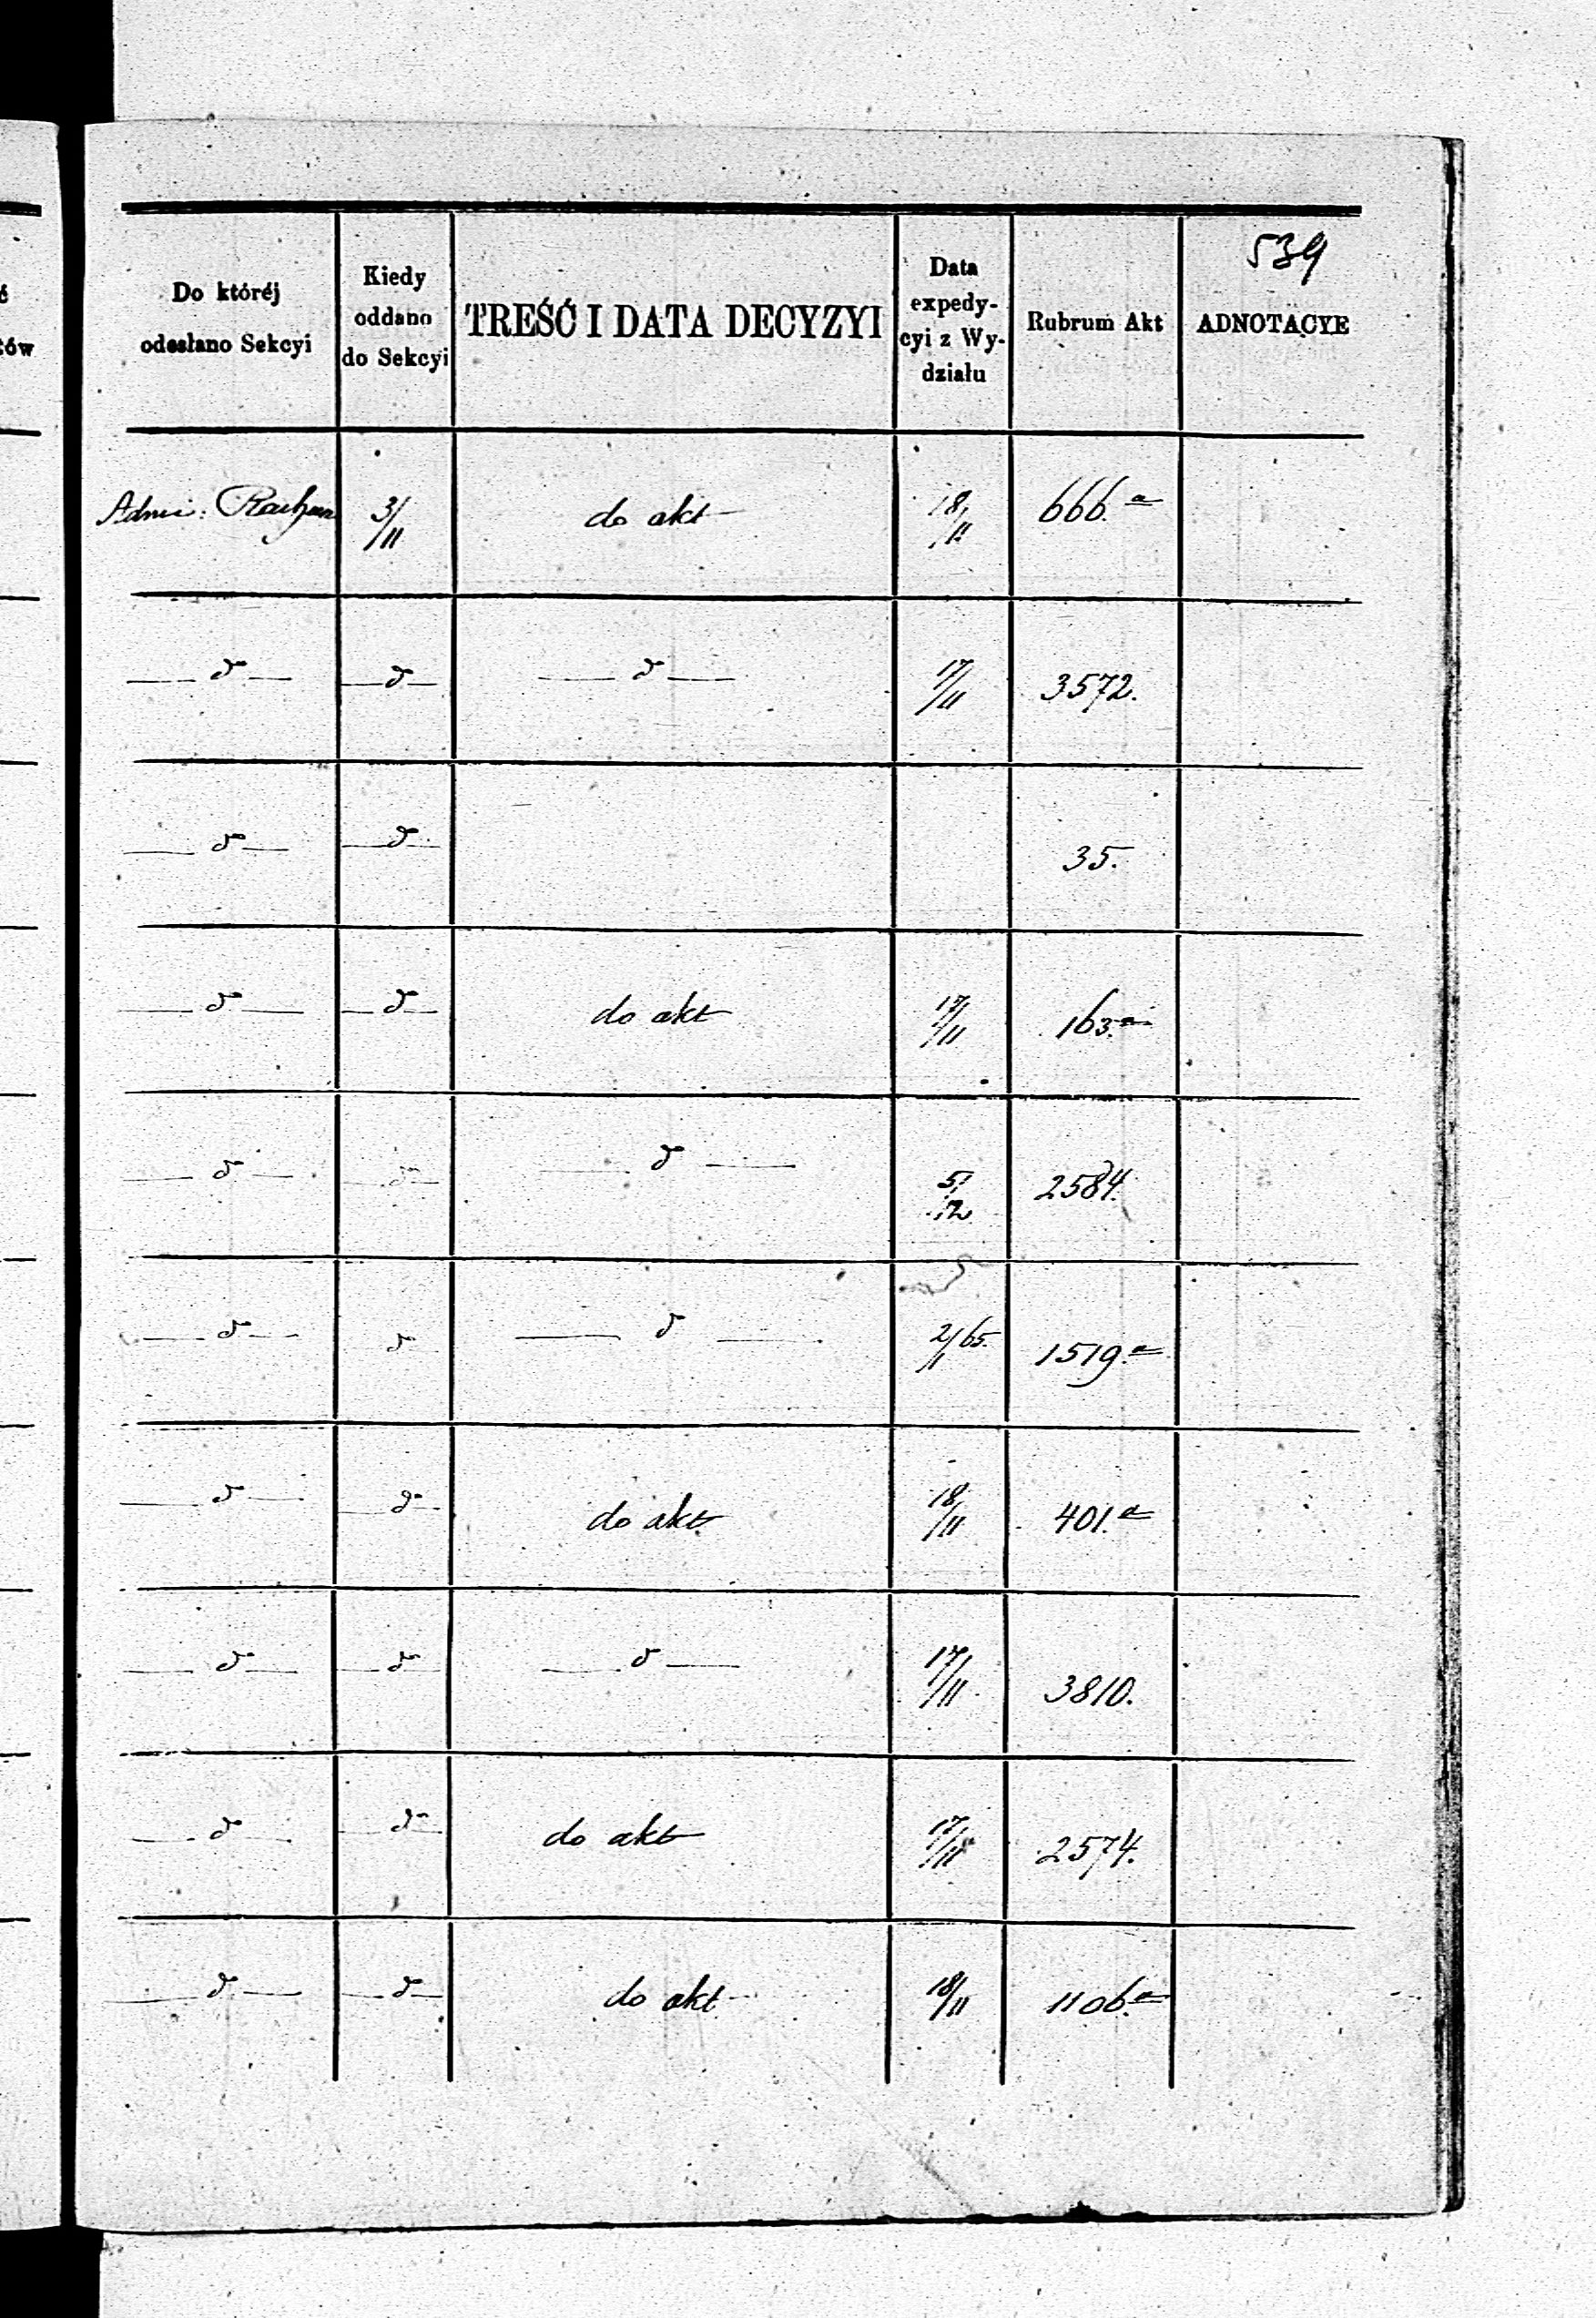 539
Do któréj odesłano Sekcyi | Kiedy oddano do Sekcyi | TREŚĆ I DATA DECYZYI | Data expedycyi z Wydziału | Rubrum Akt | ADNOTACYE
Admi: | 3/11 | do akt | 18/11 | 666.a
d° | d° | d° | 17/11 | 3572.
d° | d° | 35.
d° | d° | do akt | 17/11 | 163.a
d° | d° | d° | 5/12 | 2584.
d° | d° | d° | 2/1 65. | 1519.a
d° | d° | do akt | 18/11 | 401.a
d° | d° | d° | 17/11 | 3810.
d° | d° | do akt | 17/11 | 2574.
d° | d° | do akt | 18/11 | 1106.a